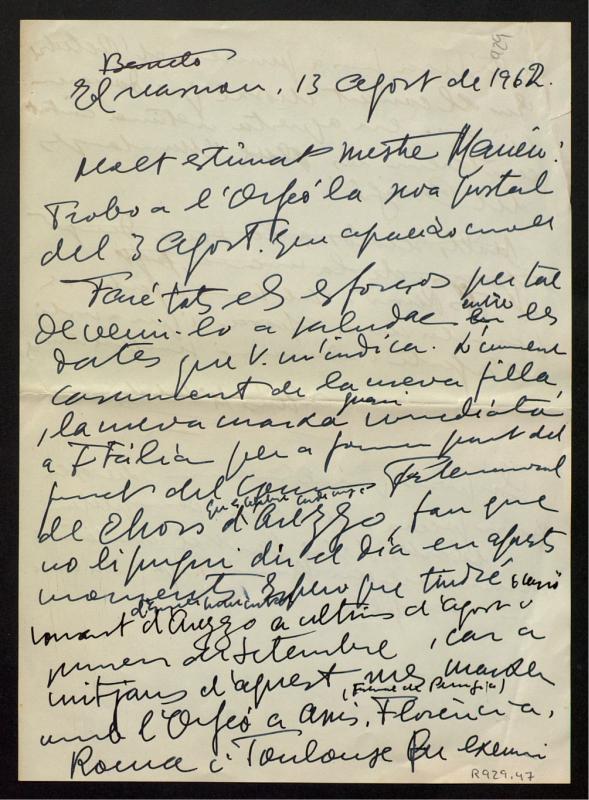 Barceló
El Masnou, 13 agost de 1962.
529
Molt estimat mestre
Trobo a l'Orfeó la seva postal
del 3 agost. Que
Faré tots els esforços per tal
de venir-lo a saludar entre les
dates que V. m'indica. L'imminent
casament de la meva filla,
i la meva marxa quasi immediata
a Itàlia per a formar part del
jurat del Concurs
que s'celebra
de Chors d'Arezzo, fan que
no li pugui dir el dia en aquests
moments. Espero que tindré
d'anar
tornant d'Arezzo a últims d'agost o
primers de setembre, car a
mitjans d'aquest mes marxem
(Firme de Perugia)
amb l'Orfeó a Asis, Florència,
Roma i Toulouse.
R929.47